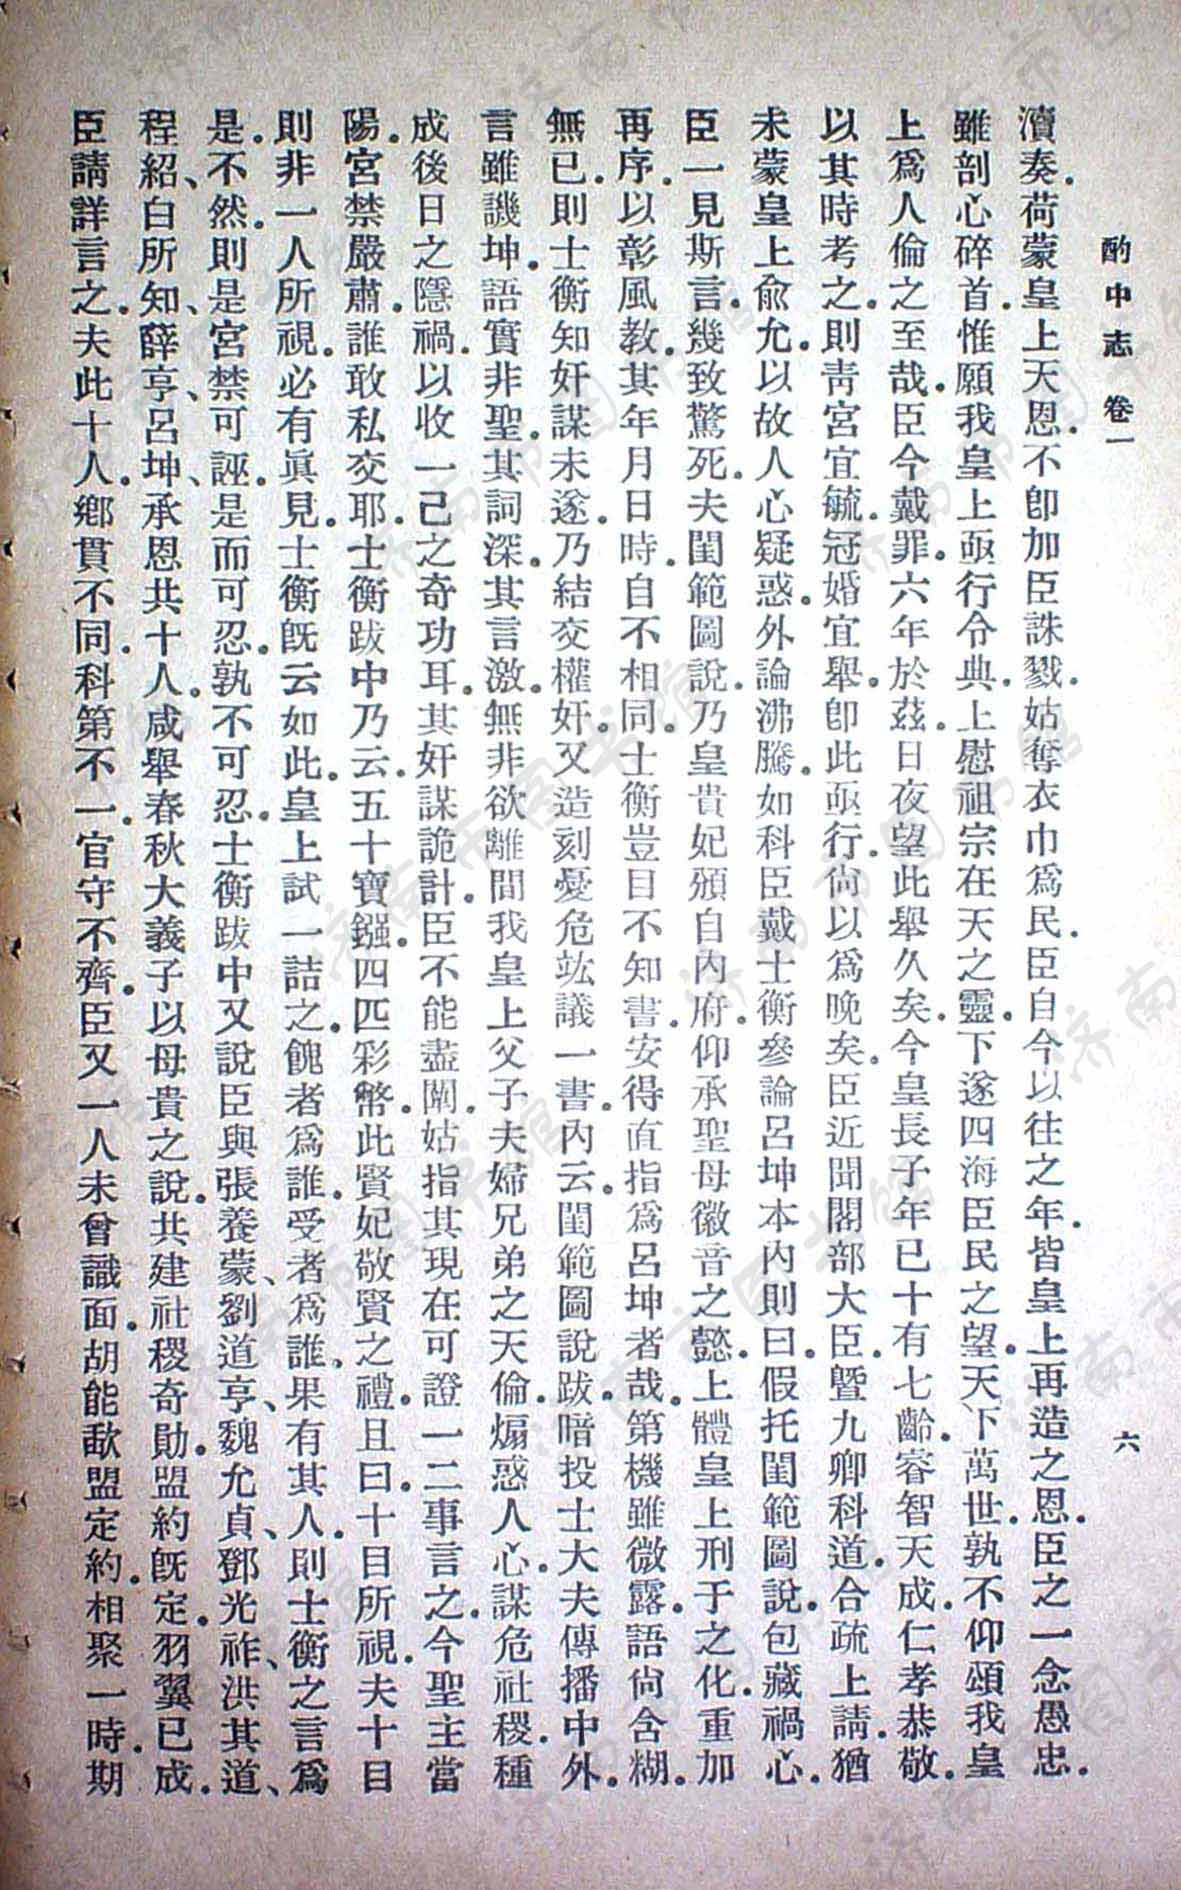 酌中志 卷一 六
瀆奏.荷蒙皇上天恩.不卽加臣誅戮.姑奪衣巾爲民.臣自今以往之年.皆皇上再造之恩.臣之一念愚忠.
雖剖心碎首.惟願我皇上亟行令典.上慰祖宗在天之靈.下遂四海臣民之望.天下萬世.孰不仰頌我皇
上爲人倫之至哉.臣今戴罪.六年於茲.日夜望此舉久矣.今皇長子年已十有七齡.睿智天成.仁孝恭敬.
以其時考之.則靑宮宜毓.冠婚宜舉.卽此亟行.尙以爲晚矣.臣近聞閣部大臣.暨九卿科道.合疏上請.猶
未蒙皇上兪允.以故人心疑惑.外論沸騰.如科臣戴士衡參論呂坤本內則曰.假托閨範圖說.包藏禍心.
臣一見斯言.幾致驚死.夫閨範圖說.乃皇貴妃頒自內府.仰承聖母徽音之懿.上體皇上刑于之化.重加
再序.以彰風教.其年月日時.自不相同.士衡豈目不知書.安得直指爲呂坤者哉.第機雖微露.語尙含糊.
無已.則士衡知奸謀未遂.乃結交權奸.又造刻憂危竑議一書.內云.閨範圖說.跋.暗投士大夫傳播中外.
言雖譏坤.語實非聖.其詞深.其言激.無非欲離間我皇上父子夫婦兄弟之天倫.煽惑人心.謀危社稷.種
成後日之隱禍.以收一己之奇功耳.其奸謀詭計.臣不能盡闡.姑指其現在可證一二事言之.今聖主當
陽.宮禁嚴肅.誰敢私交耶.士衡跋中乃云.五十寶鏹.四匹彩幣.此賢妃敬賢之禮.且曰.十目所視.夫十目
則非一人所視.必有眞見.士衡旣云如此.皇上試一詰之.餽者爲誰.受者爲誰.果有其人.則士衡之言爲
是.不然.則是宮禁可誣.是而可忍.孰不可忍.士衡跋中又說臣與張養蒙、劉道亨、魏允貞、鄧光祚、洪其道、
程紹、白所知、薛亨、呂坤、承恩共十人.咸舉春秋大義子以母貴之說.共建社稷奇勛.盟約旣定.羽翼已成.
臣請詳言之.夫此十人.鄕貫不同.科第不一.官守不齊.臣又一人未曾識面.胡能歃盟定約.相聚一時.期